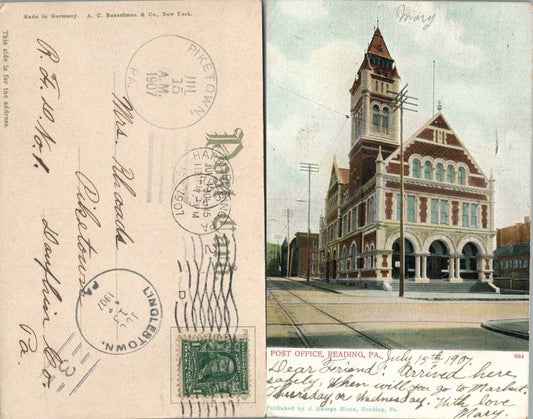 Made in Germany. A. C. Bosselman & Co., New York.
This side is for the address.
Post Card
PIKETOWN,
JUL
15
A.M.
1907
PA.
Mrs. Rhoads
Piketown
R. F. D. No. 1.
Dauphin Co.
Pa
LINGLESTOWN,
1907
PA.
3
D
Mary
POST OFFICE, READING, PA.
964
July 15th 1907
Dear Friend: Arrived here
safely. When will you go to Market.
Thursday, or Wednesday. With love
Mary.
Published by J. George Hintz, Reading, Pa.